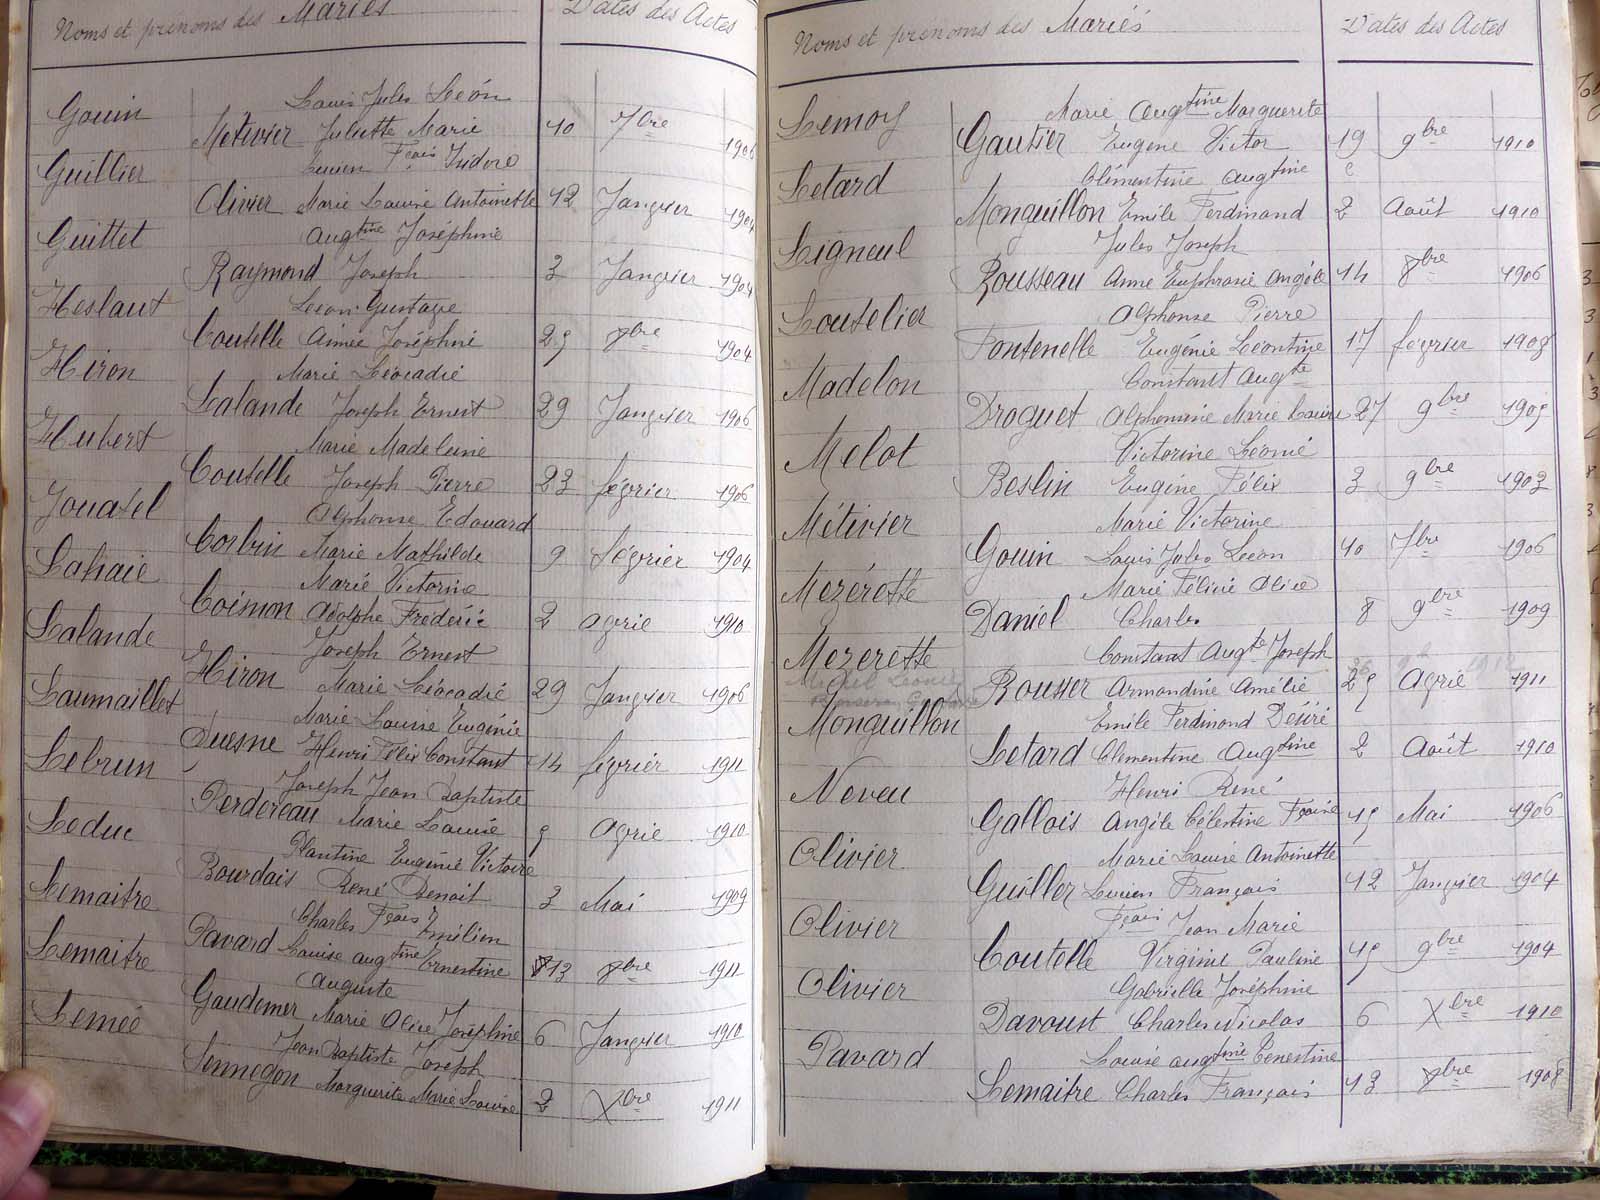 Noms et prénoms des Mariés Dates des Actes
Gouin Louis Jules Léon
Métivier Juliette Marie 10 7bre 1906
Guillier Lucien Fçois Isidore
Olivier Marie Louise Antoinette 12 Janvier 1904
Guittet Augtine Joséphine
Raymond Joseph 3 Janvier 1904
Heslaut Léon Gustave
Coutelle Aimée Joséphine 25 8bre 1904
Hiron Marie Léocadie
Lalande Joseph Ernest 29 Janvier 1906
Hubert Marie Madeleine
Coutelle Joseph Pierre 23 février 1906
Jouatel Alphonse Edouard
Corbin Marie Mathilde 9 février 1904
Lahaie Marie Victorine
Coisnon Adolphe Frédéric 2 avril 1910
Lalande Joseph Ernest
Hiron Marie Léocadie 29 Janvier 1906
Laumaillet Marie Louise Eugénie
Duesne Henri Félix Constant 14 février 1911
Lebrun Joseph Jean Baptiste
Perdereau Marie Louise 5 avril 1910
Leduc Plantine Eugénie Victoire
Bourdais René Benoit 3 Mai 1909
Lemaitre Charles Fçois Emilien
Pavard Louise augtine Ernestine 13 8bre 1911
Lemaitre Auguste
Gaudemer Marie Alice Joséphine 6 Janvier 1910
Lemée Jean Baptiste Joseph
Sennegon Marguerite Marie Louise 2 Xbre 1911
Noms et prénoms des Mariés Dates des Actes
Lemoy Marie Augtine Marguerite
Gautier Eugène Victor 19 9bre 1910
Letard Clémentine Augtine
Monguillon Emile Ferdinand 2 Août 1910
Ligneul Jules Joseph
Rousseau Anne Euphrasie Angèle 14 8bre 1906
Loutelier Alphonse Pierre
Fontenelle Eugénie Léontine 17 février 1908
Madelon Constant Augte
Droguet Alphonsine Marie Louise 27 9bre 1905
Melot Victorine Léonie
Beslin Eugène Félix 3 9bre 1903
Métivier Marie Victorine
Gouin Louis Jules Léon 10 7bre 1906
Mezérette Marie Féline Alice
Daniel Charles 8 9bre 1909
Mezerette Constant Augte Joseph
Miguel Léonie 26 9b 1912
Rousier Armandine Amélie 25 Avril 1911
Monguillon Emile Ferdinand Désiré
Letard Clémentine Augtine 2 Août 1910
Neveu Henri René
Gallois Angèle Célestine Fçoise 15 Mai 1906
Olivier Marie Louise Antoinette
Guiller Lucien François 12 Janvier 1904
Olivier Fçois Jean Marie
Coutelle Virginie Pauline 15 9bre 1904
Olivier Gabrielle Joséphine
Davoust Charles Nicolas 6 Xbre 1910
Pavard Louise augtine Ernestine
Lemaitre Charles François 13 8bre 1908